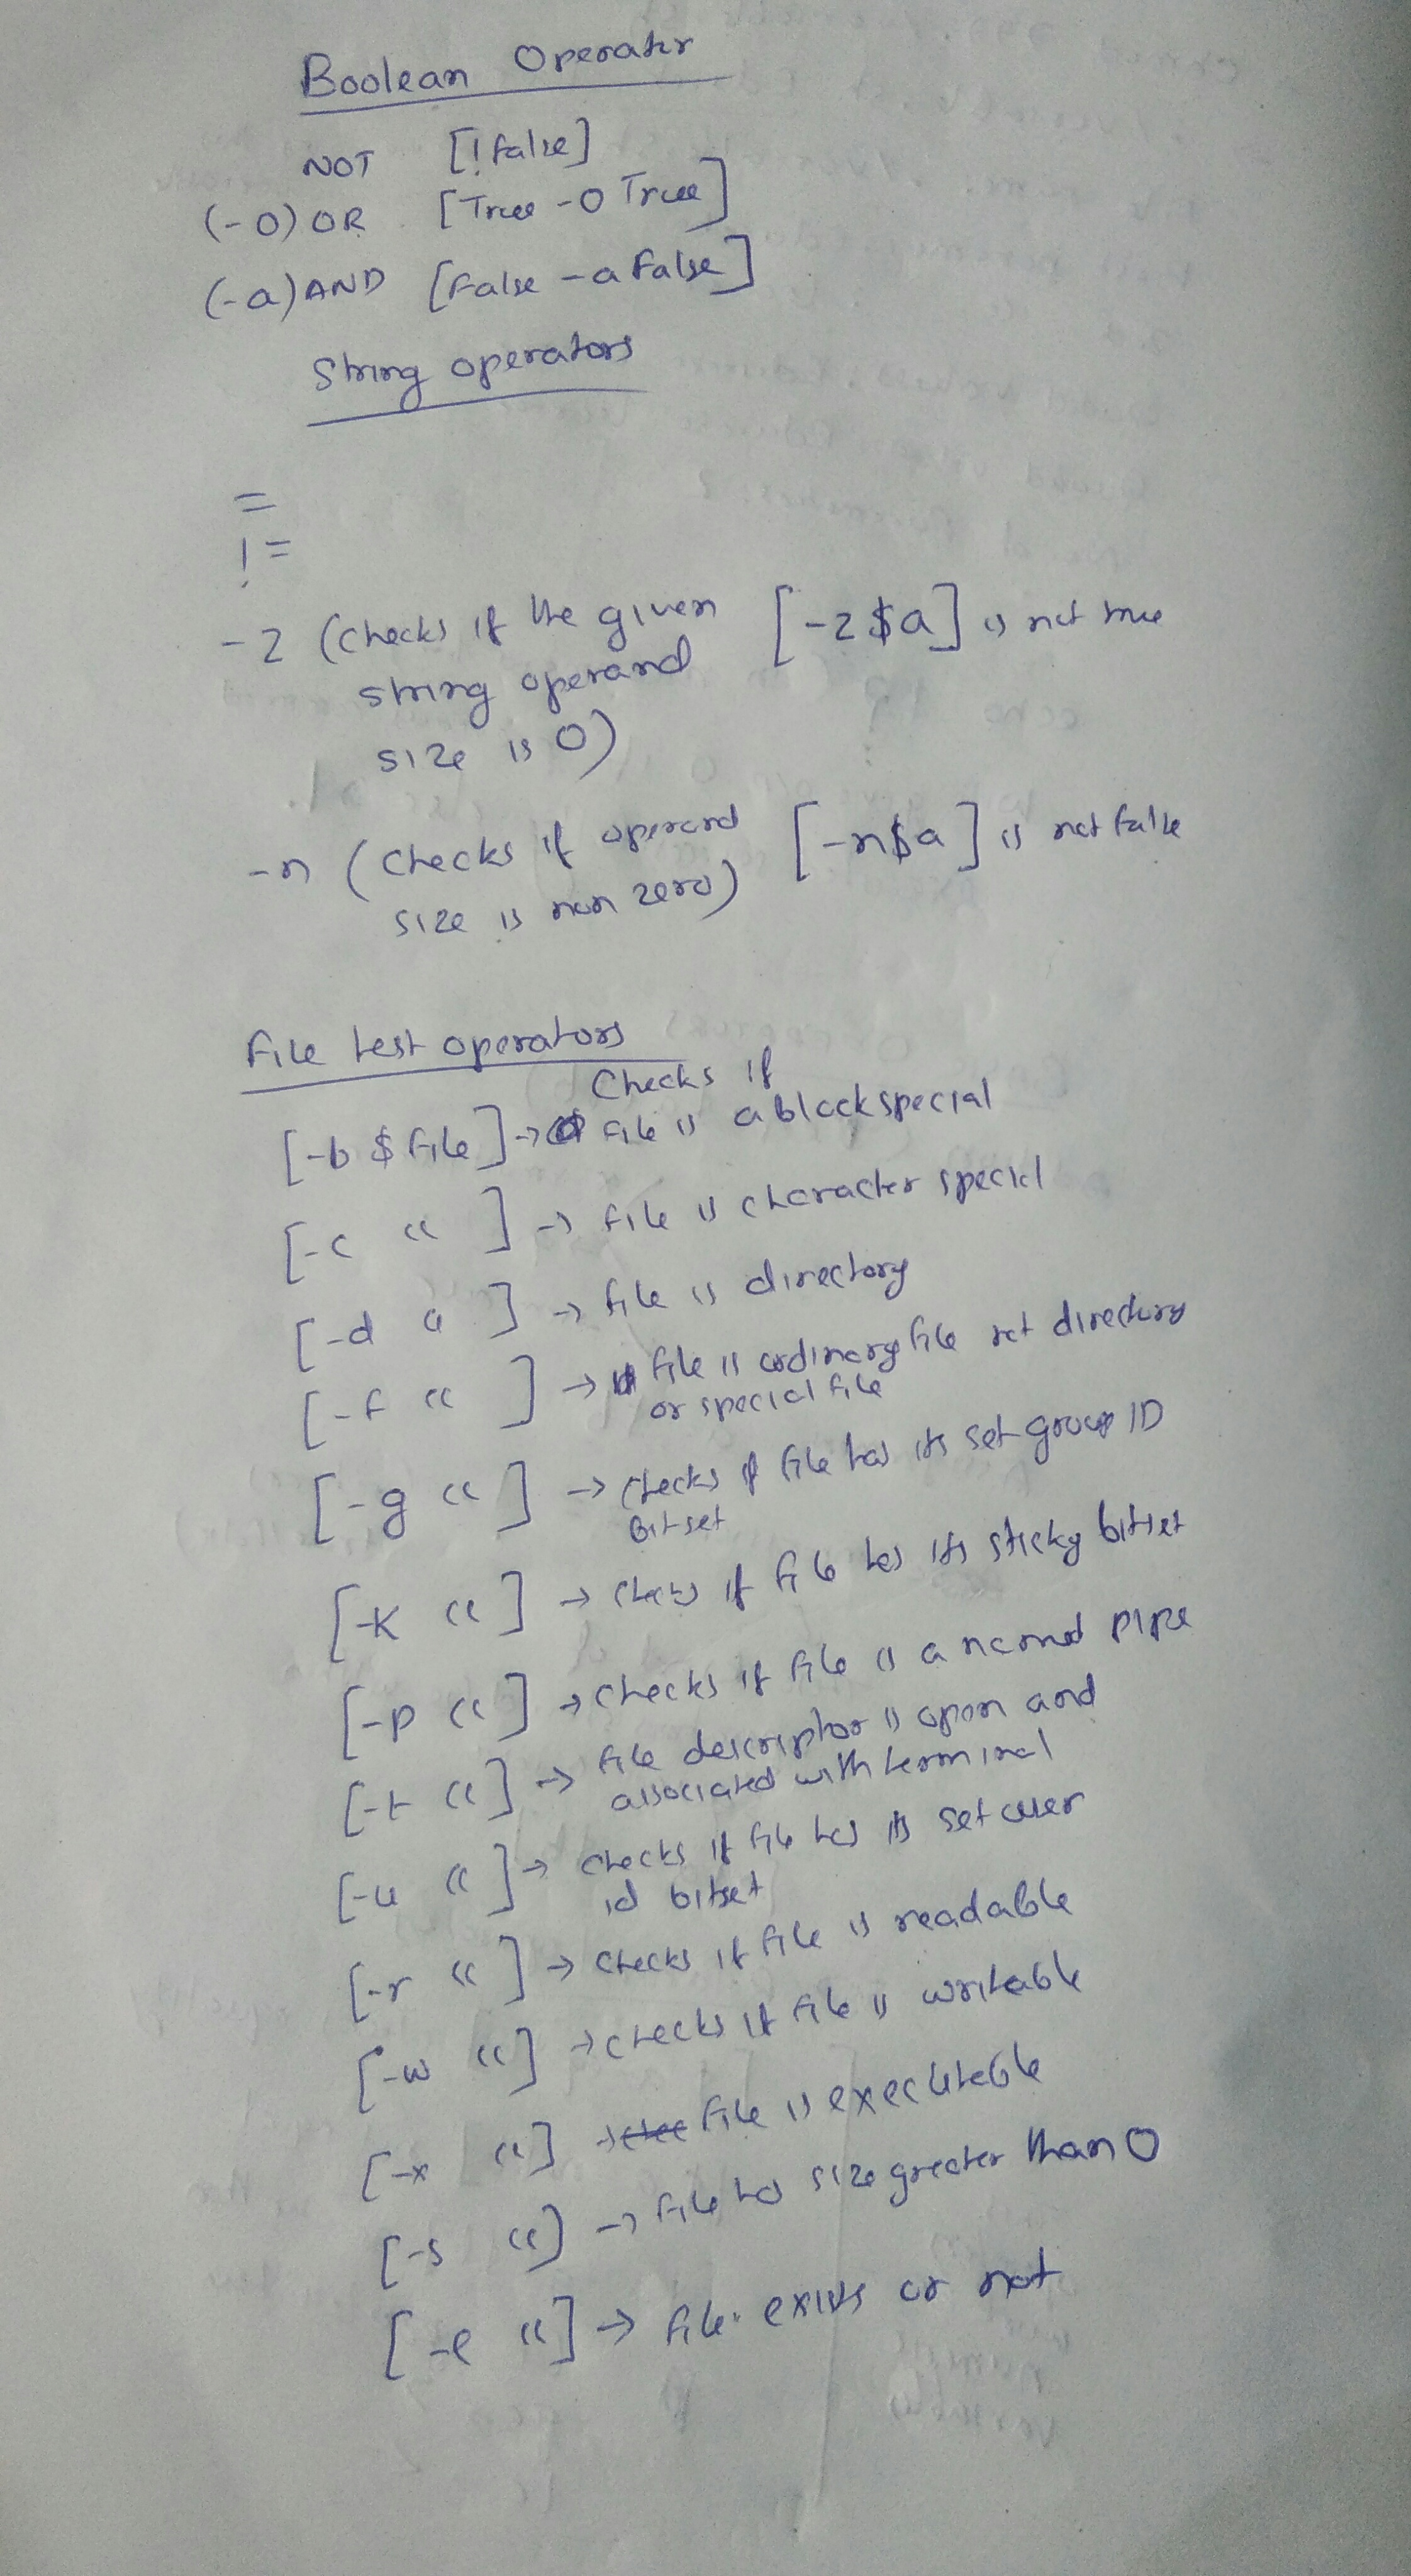 Boolean Operator
NOT [! false]
(-o) OR [True -o True]
(-a) AND [False -a False]
String operators
=
!=
-z (Checks if the given [-z $a] is not true
string operand
size is 0)
-n (Checks if operand [-n $a] is not false
size is non zero)
File test operators
Checks if
[-b $file] → file is a block special
[-c " ] → file is character special
[-d " ] → file is directory
[-f " ] → file is ordinary file not directory
or special file
[-g " ] → Checks if file has its set group ID
Bit set
[-k " ] → Checks if file has its sticky bit set
[-p " ] → Checks if file is a named pipe
[-t " ] → file descriptor is open and
associated with terminal
[-u " ] → Checks if file has its set user
id bitset
[-r " ] → Checks if file is readable
[-w " ] → checks if file is writable
[-x " ] → file is executable
[-s " ] → file has size greater than 0
[-e " ] → file exists or not